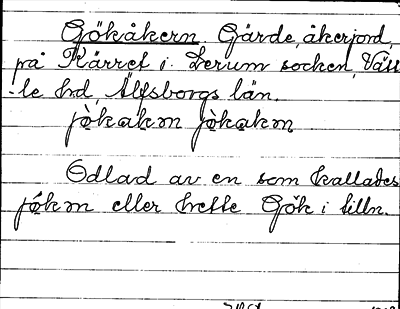 Gökåkern. Gärde, åkerjord,
på Kärret i Lerum socken, Väti-
le hd, Älfsborgs län.
jö̀kakɷn jö̀kakɷn
Odlad av en som kallades
jö́kɷn eller hette Gök i tilln.